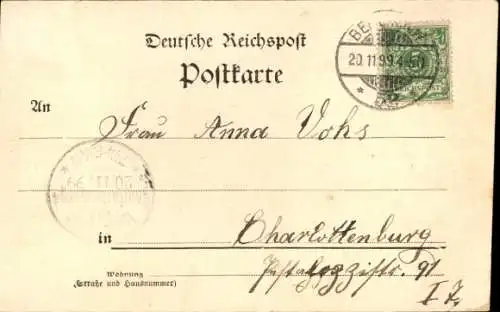 Deutsche Reichspost
Postkarte
20.11.99.4-5N
An
Frau Anna Vohs
20.11.99
in Charlottenburg
Pestalozzistr. 91
I 7.
Wohnung
(Straße und Hausnummer)